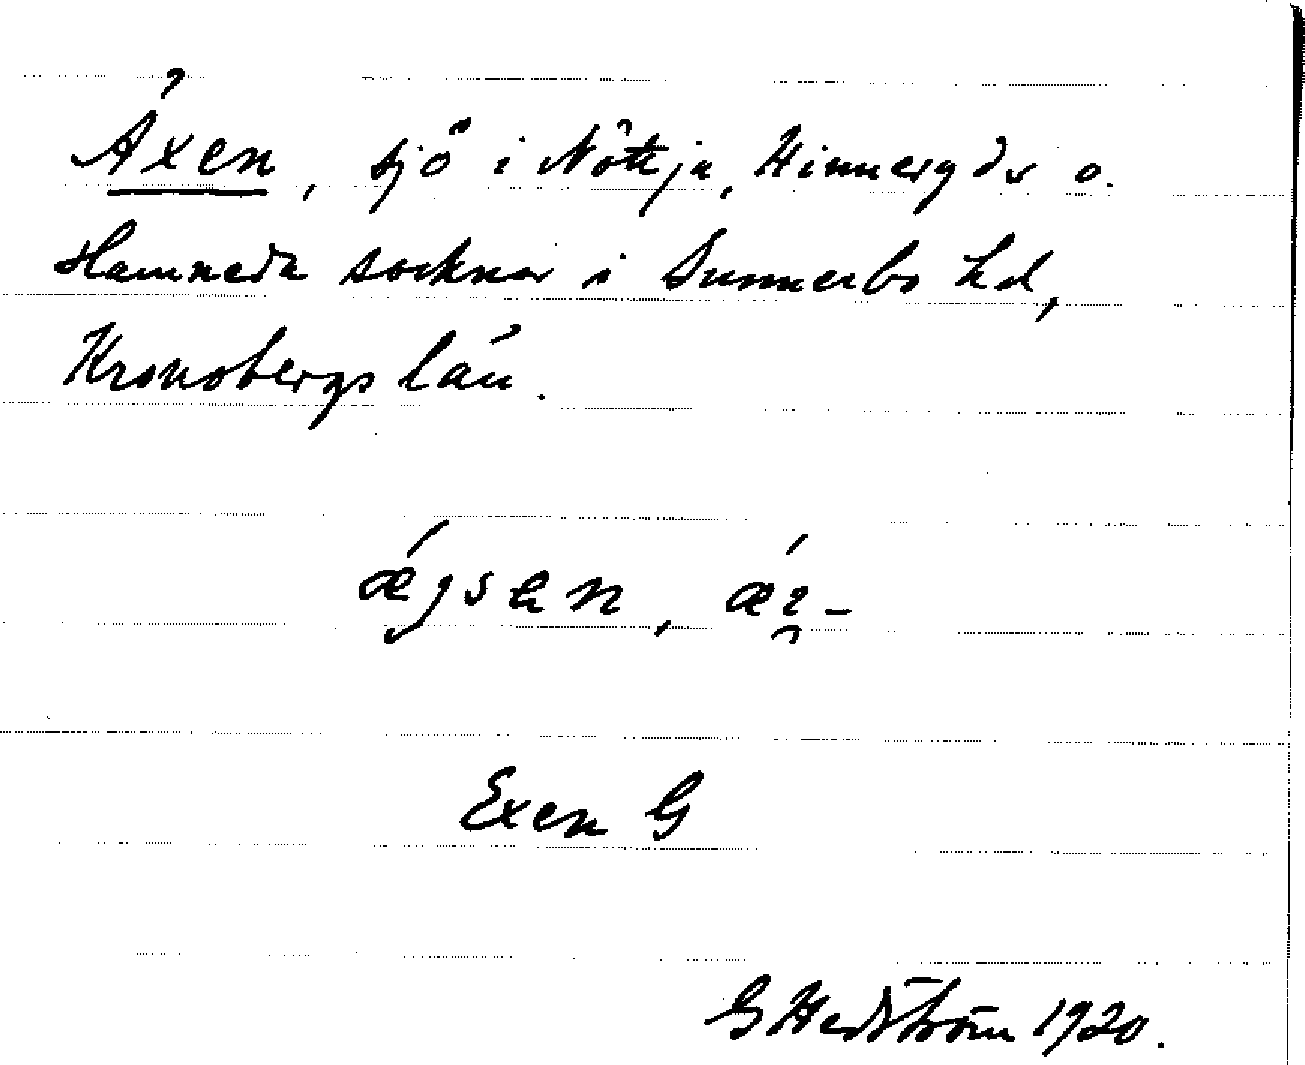 Äxen, sjö i Nöttja, Hinneryds o.
Hamneda socknar i Sunnerbo hd,
Kronobergs län.
ǽgsen, ǽ
Exen G
G Hedström 1920.